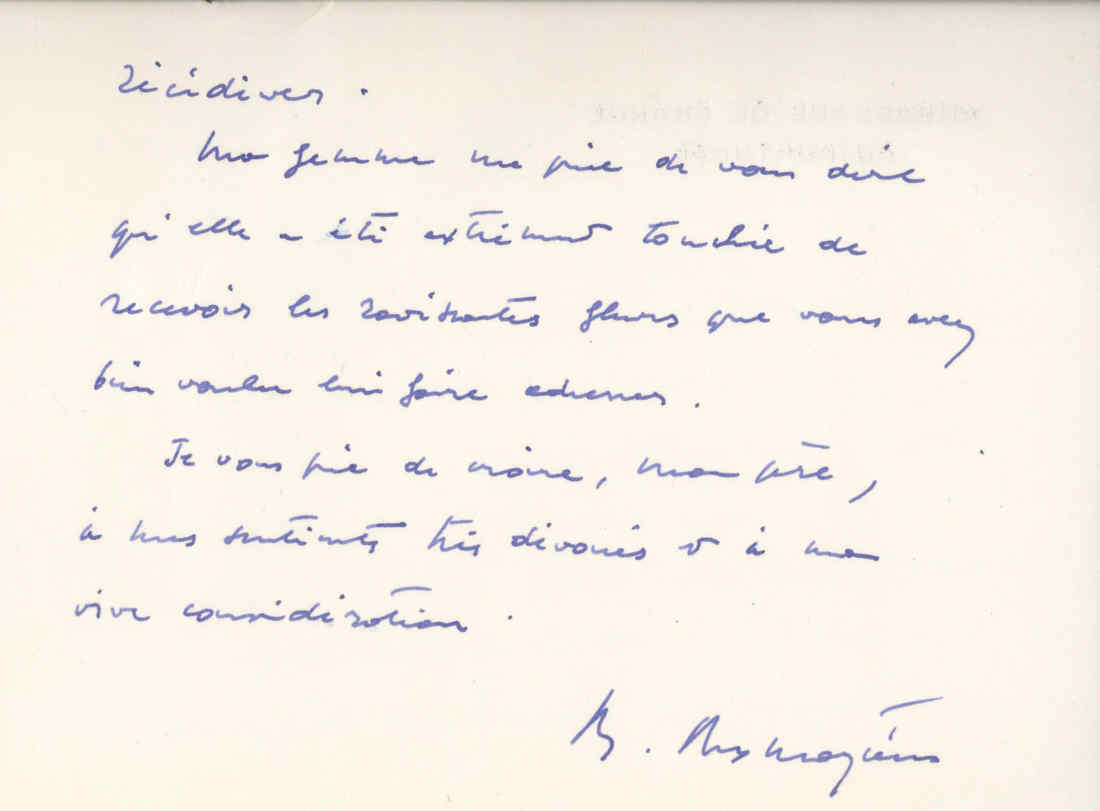 récidiver.
Ma femme me prie de vous dire
qu'elle a été extrêmement touchée de
recevoir les ravissantes fleurs que vous avez
bien voulu lui faire adresser.
Je vous prie de croire, mon père,
à mes sentiments très dévoués et à ma
vive considération.